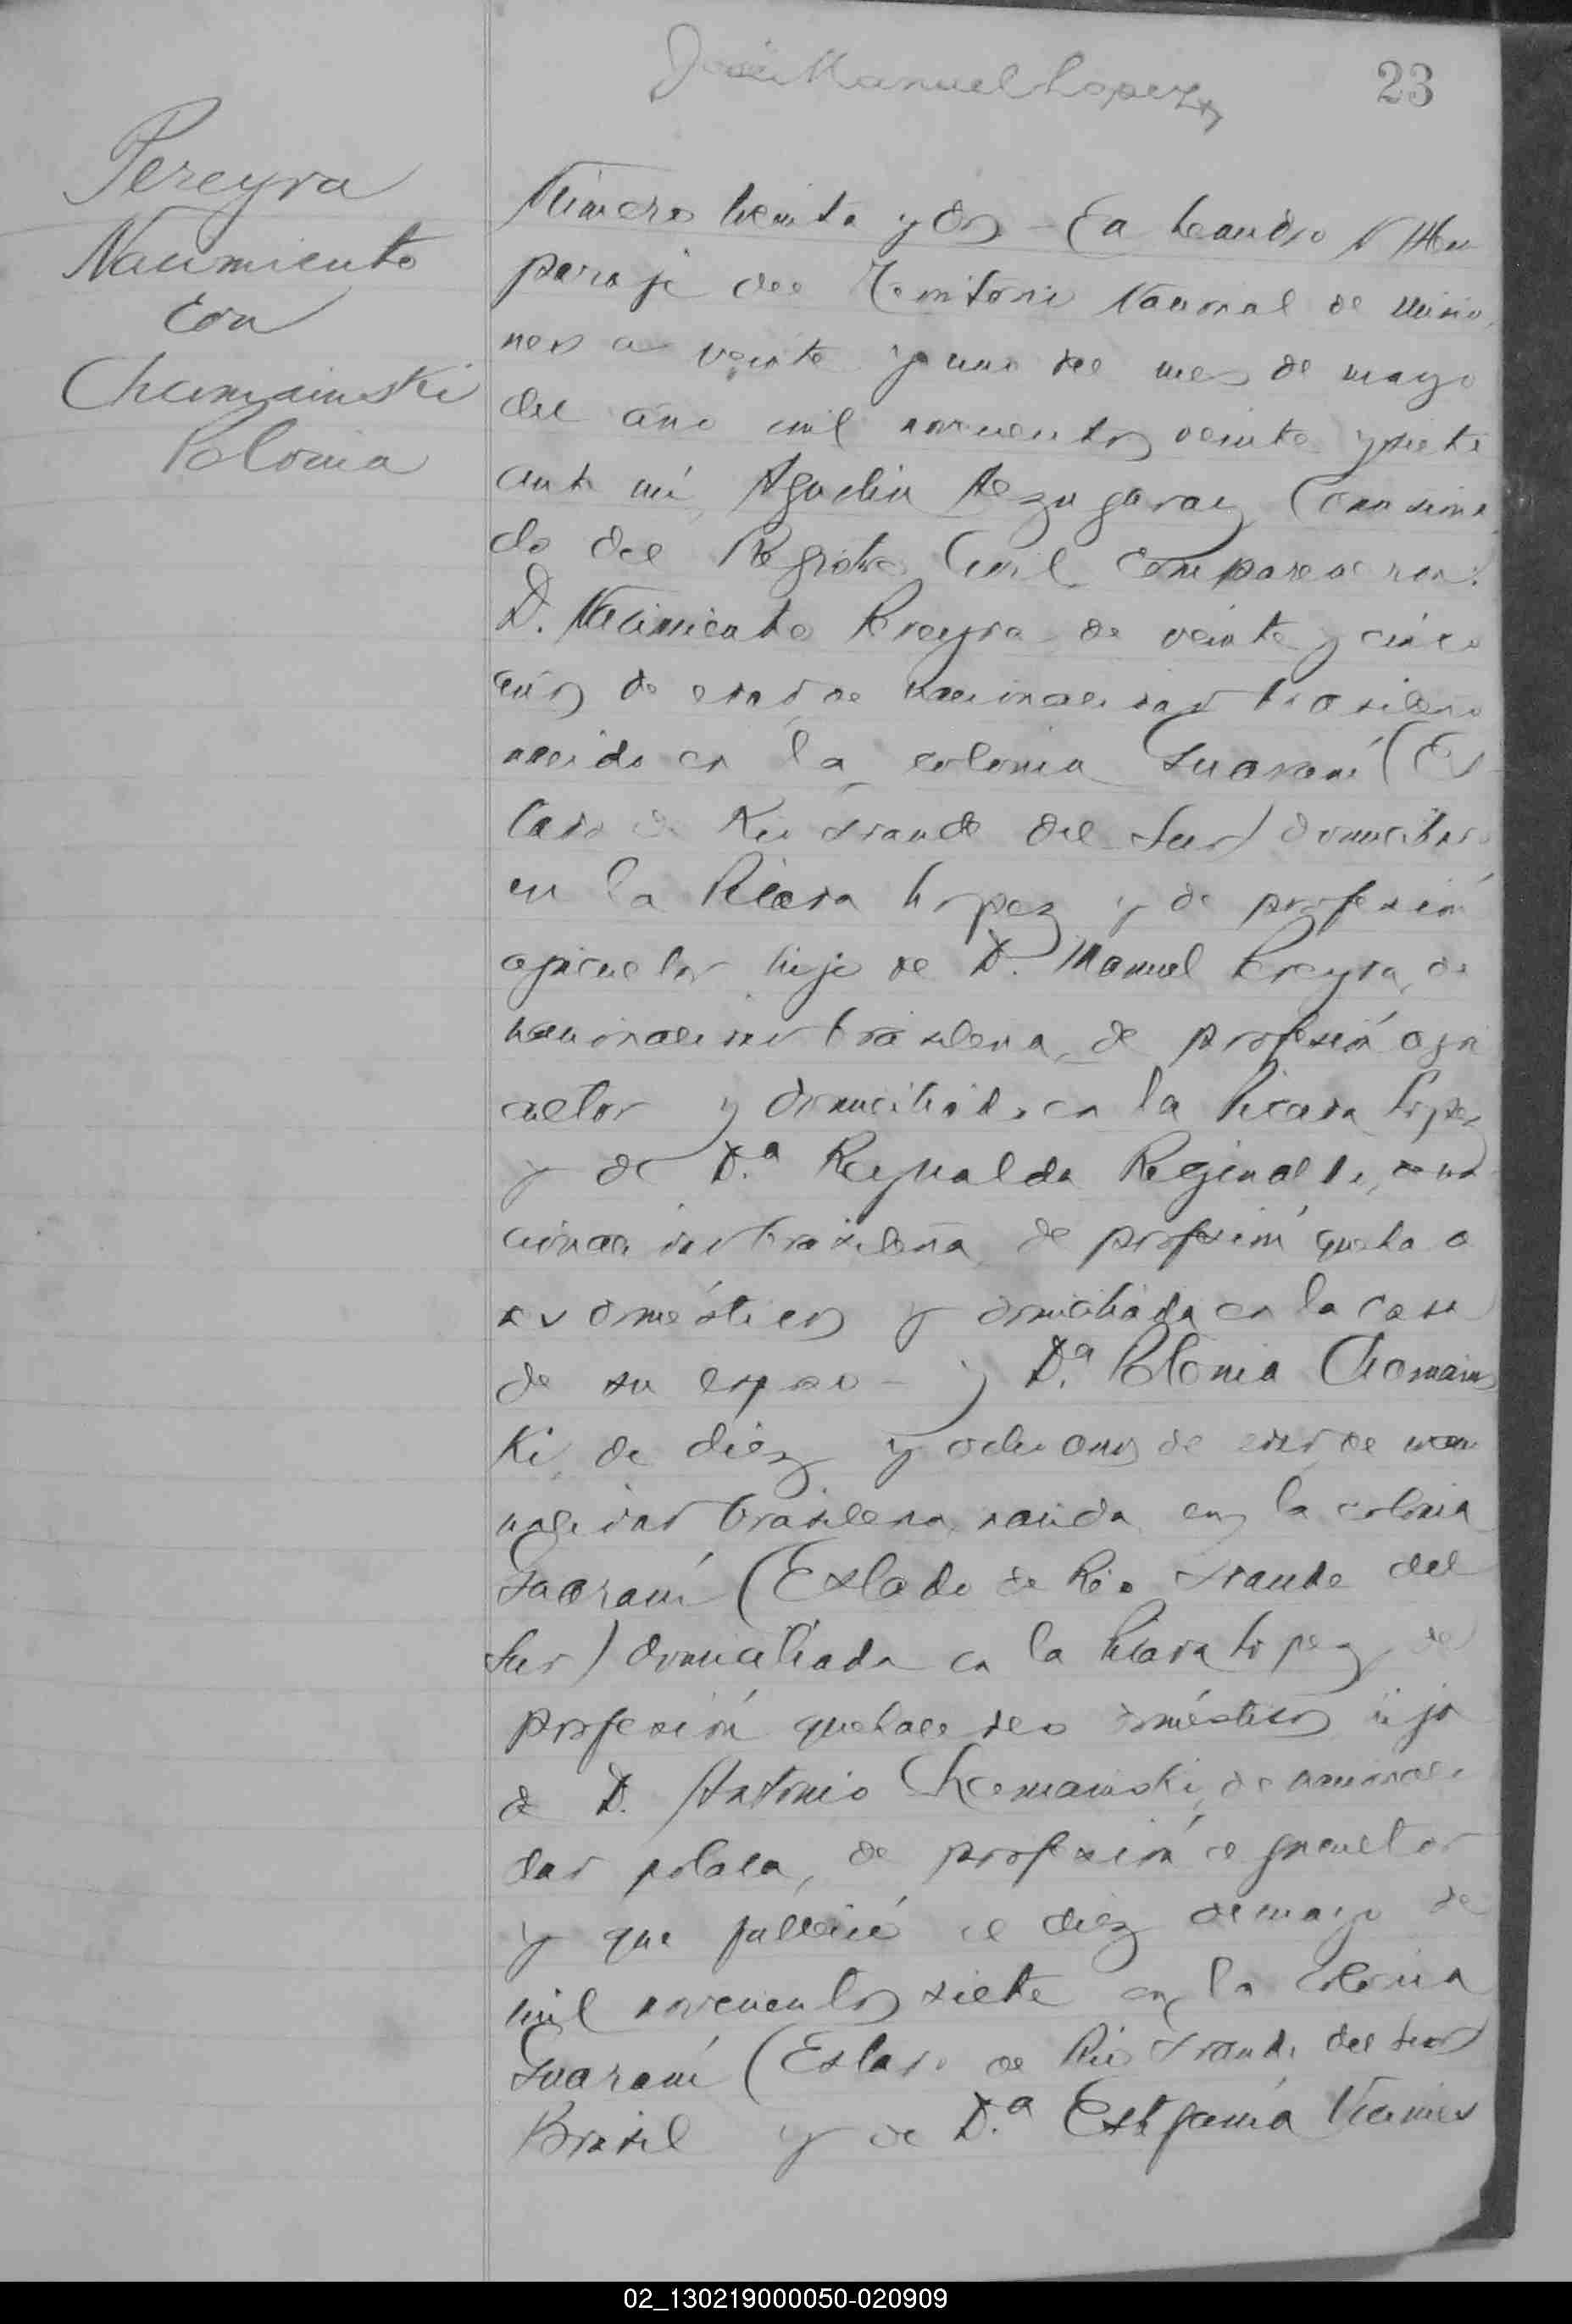 José Manuel Lopez
23
Pereyra
Nacimiento
con
Chumainski
Polonia
Número treinta y dos - En Leandro N Alem
paraje del Territorio Nacional de Misio
nes a veinte y uno del mes de mayo
del año mil novecientos veinte y siete
ante mí, Agustin Aezugaray Comisiona
do del Registro Civil comparecieron:
D. Nacimiento Pereyra de veinte y cinco
años de edad, de nacionalidad brasileña
nacido en la colonia Guaraní (Es
tado de Rio Grande del Sur) domiciliado
en la Picada Lopez y de profesión
agricultor hijo de D. Manuel Pereyra, de
nacionalidad brasilena, de profesión agri
cultor y domiciliado en la Picada Lopez
y de D.ª Reynalda Reginaldi, de na
cionalidad brasileña, de profesión queha
domésticos y domiciliada en la casa
de su esposo - y D.ª Polonia Chomains
ki, de diez y ocho anos de edad, de nacio
nalidad brasilena, nacida en la colonia
Guaraní (Estado de Rio Grande del
Sur) domiciliada en la Picada Lopez, de
profesión quehaceres domésticos hija
de D. Antonio Chomainski, de nacionali
dad polaca, de profesión agricultor
y que falleció el diez de mayo de
mil novecientos siete en la Colonia
Guaraní (Estado de Rio Grande del Sur)
Brasil y de D.ª Estefanía
02_130219000050-020909